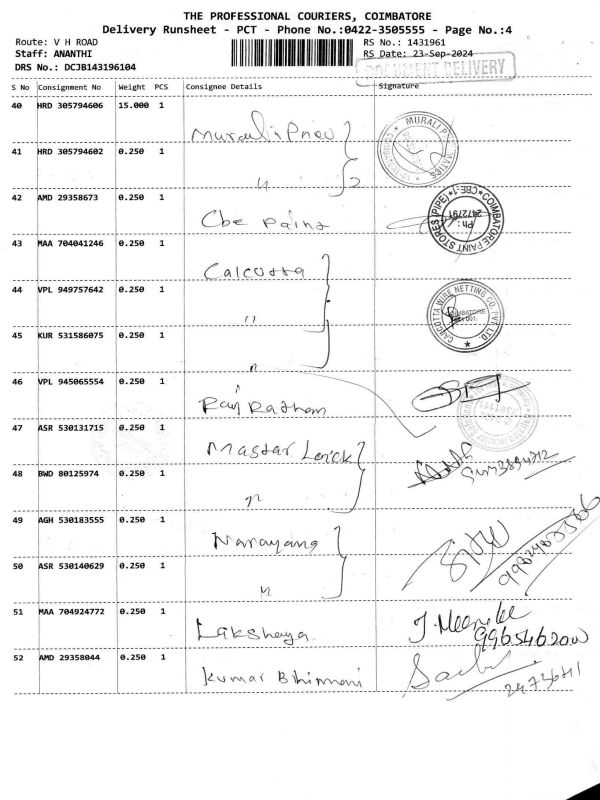 THE PROFESSIONAL COURIERS, COIMBATORE
Delivery Runsheet - PCT - Phone No.:0422-3505555 - Page No.:4
Route: V H ROAD RS No.: 1431961
Staff: ANANTHI RS Date: 23-Sep-2024
DRS No.: DCJB143196104
DOCUMENT DELIVERY
S No Consignment No Weight PCS Consignee Details Signature
40 HRD 305794606 15.000 1
MURALI
41 HRD 305794602 0.250 1
2
42 AMD 29358673 0.250 1
Cbe Paint
COIMBATORE PAINT STORES (PIPE) CBE-1
Ph : 2472791
43 MAA 704041246 0.250 1
Calcutta
44 VPL 949757642 0.250 1
"
CALCUTTA WIRE NETTING CO. PVT. LTD.
COIMBATORE
45 KUR 531586075 0.250 1
46 VPL 945065554 0.250 1
Raj Rathan
47 ASR 530131715 0.250 1
Mastar Lock
48 BWD 80125974 0.250 1
49 AGH 530183555 0.250 1
Narayana
50 ASR 530140629 0.250 1
51 MAA 704924772 0.250 1
Lakshaya
52 AMD 29358044 0.250 1
Kumar